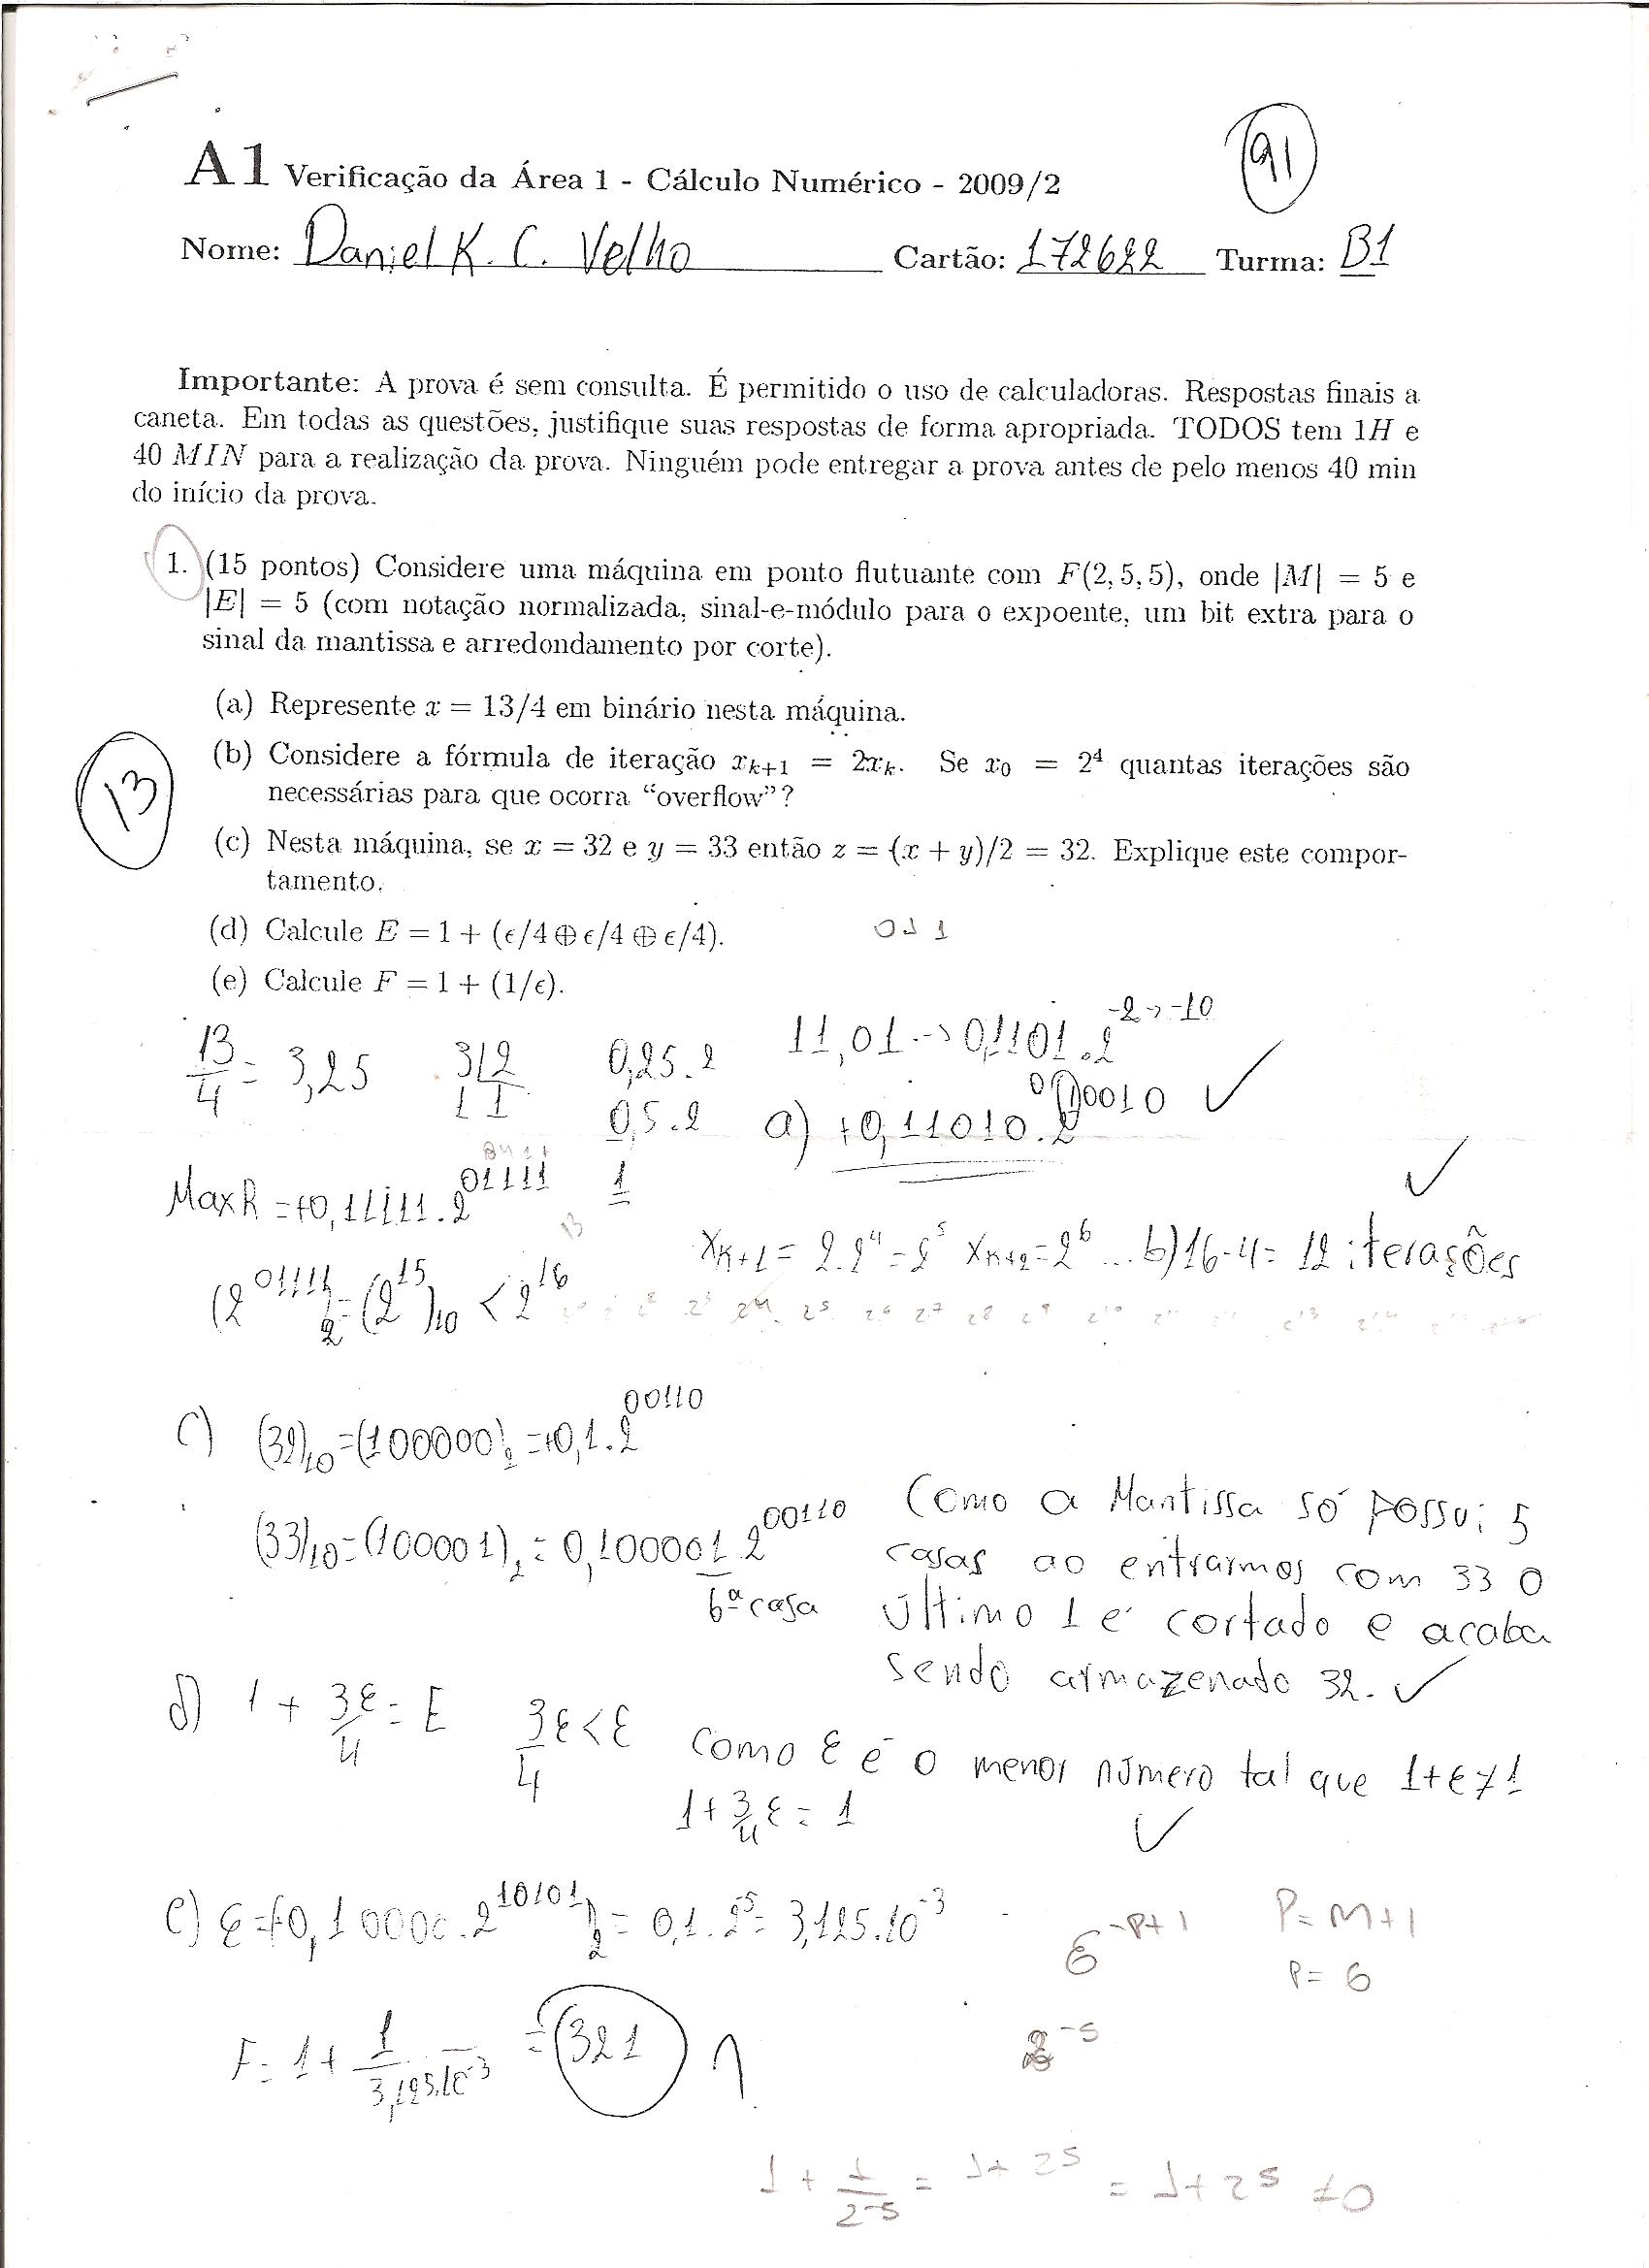 A1 Verificação da Área 1 - Cálculo Numérico - 2009/2
91
Nome: Daniel K. C. Velho Cartão: 172622 Turma: B1
Importante: A prova é sem consulta. É permitido o uso de calculadoras. Respostas finais a
caneta. Em todas as questões, justifique suas respostas de forma apropriada. TODOS tem 1H e
40 MIN para a realização da prova. Ninguém pode entregar a prova antes de pelo menos 40 min
do início da prova.
1. (15 pontos) Considere uma máquina em ponto flutuante com F(2, 5, 5), onde |M| = 5 e
|E| = 5 (com notação normalizada, sinal-e-módulo para o expoente, um bit extra para o
sinal da mantissa e arredondamento por corte).
(a) Represente x = 13/4 em binário nesta máquina.
(b) Considere a fórmula de iteração xₖ₊₁ = 2xₖ. Se x₀ = 2⁴ quantas iterações são
necessárias para que ocorra “overflow”?
13
(c) Nesta máquina, se x = 32 e y = 33 então z = (x + y)/2 = 32. Explique este compor-
tamento.
(d) Calcule E = 1 + (ϵ/4 ⊕ ϵ/4 ⊕ ϵ/4).
(e) Calcule F = 1 + (1/ϵ).
13/4 = 3,25 3|2 0,25.2 11,01 -> 0,1101.2 -2 -> -10
1 1 0,5.2 a) +0,11010.2 00010 ✓
1
MaxR = +0,11111.2^01111 ✓
13
xₖ₊₁ = 2.2⁴ = 2⁵ xₖ₊₂ = 2⁶ ... b) 16-4 = 12 iterações
(2^01111)₂ = (2^15)₁₀ < 2^16
c) (32)₁₀ = (100000)₂ = +0,1.2^00110
(33)₁₀ = (100001)₂ = 0,100001.2^00110 Como a Mantissa só possui 5
6ª casa casas ao entrarmos com 33 o
último 1 é cortado e acaba
sendo armazenado 32. ✓
d) 1 + 3ε/4 = E 3/4 ε < ε como ε é o menor número tal que 1+ε≠1
1 + 3/4 ε = 1 ✓
e) ε = (+0,10000.2^10101)₂ = 0,1.2^-5 = 3,125.10^-3
-P+1 P = M+1
P = 6
F = 1 + 1/3,125.10^-3 = 321
2^-5
1 + 1/2^-5 = 1+2^5 = 1+2^5 ≠0